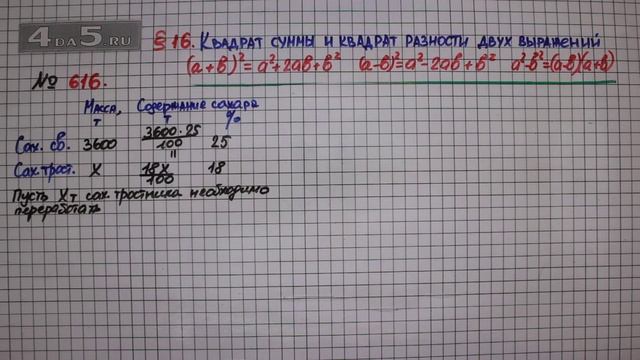 4DA5.RU
§ 16. Квадрат суммы и квадрат разности двух выражений
(а+в)²=а²+2ав+в² (а-в)²=а²-2ав+в² а²-в²=(а-в)(а+в)
№ 616.
Масса, Содержание сахара
т т %
Сах. св. 3600 3600·25/100 25
=
Сах. трост. X 18X/100 18
Пусть Xт сах. тростника необходимо
переработать